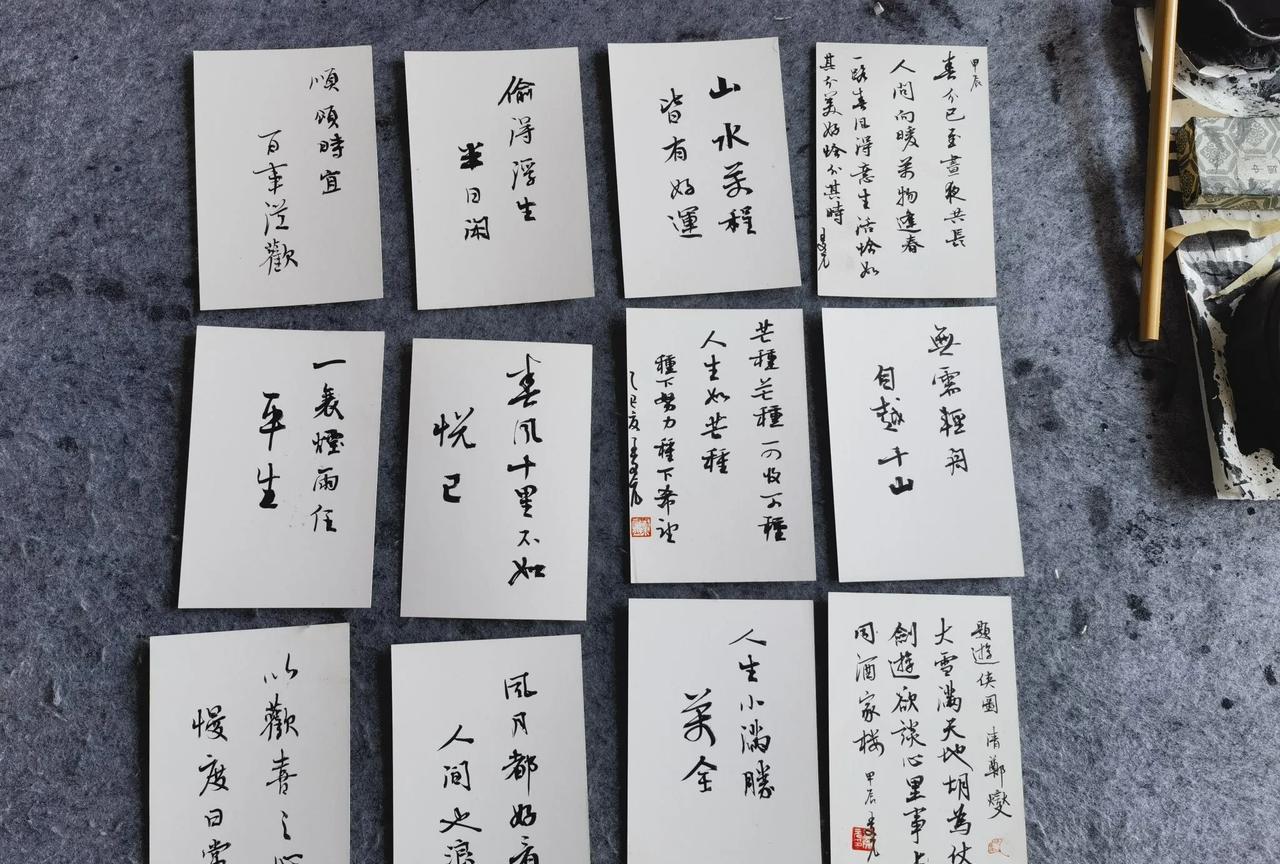 順頌時宜
百事從歡
偷得浮生
半日闲
山水萬程
皆有好運
甲辰
春分已至晝夜共長
人間向暖萬物逢春
一路春风得意生活恰如
其分美好恰分其時
一蓑煙雨任
平生
春风十里不如
悦己
芒種芒種可收可種
人生如芒種
種下努力種下希望
乙巳夏
無需輕舟
自越千山
以歡喜之心
慢度日常
风月都好看
人间也浪
人生小滿勝
萬全
題遊俠圖 清鄭燮
大雪滿天地胡為仗
劍遊欲談心里事上
同酒家楼
甲辰